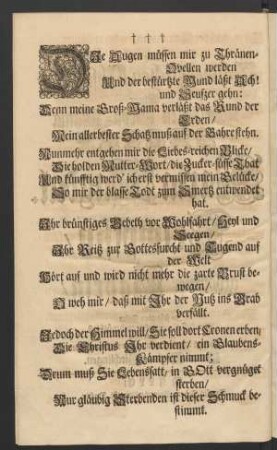 † † †
DIe Augen müssen mir zu Thränen-
Qvellen werden
Und der bestürtzte Mund läßt Ach!
und Seufzer gehn:
Denn meine Groß-Mama verläßt das Rund der
Erden/
Mein allerbester Schatz muß auf der Bahre stehn.
Nunmehr entgehen mir die Liebes-reichen Blicke/
Die holden Mutter-Wort/ die Zucker-süsse That
Und künfftig werd' ich erst vermissen mein Gelücke/
So mir der blasse Todt zum Smertz entwendet
hat.
Ihr brünstiges Gebeth vor Wohlfahrt/ Heyl und
Seegen/
Ihr Reitz zur Gottesfurcht und Tugend auf
der Welt
Hört auf und wird nicht mehr die zarte Brust be-
wegen/
O weh mir/ daß mit Ihr der Nutz ins Grab
verfällt.
Jedoch der Himmel will/ Sie soll dort Cronen erben/
Die Christus Ihr verdient/ ein Glaubens-
Kämpfer nimmt;
Drum muß Sie Lebenssatt/ in GOtt vergnüget
sterben/
Nur gläubig Sterbenden ist dieser Schmuck be-
stimmt.